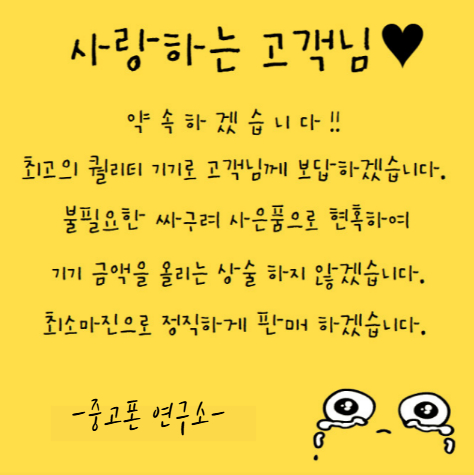 사랑하는 고객님♥
약속하겠습니다!!
최고의 퀄리티 기기로 고객님께 보답하겠습니다.
불필요한 싸구려 사은품으로 현혹하여
기기 금액을 올리는 상술 하지 않겠습니다.
최소마진으로 정직하게 판매 하겠습니다.
-중고폰 연구소-